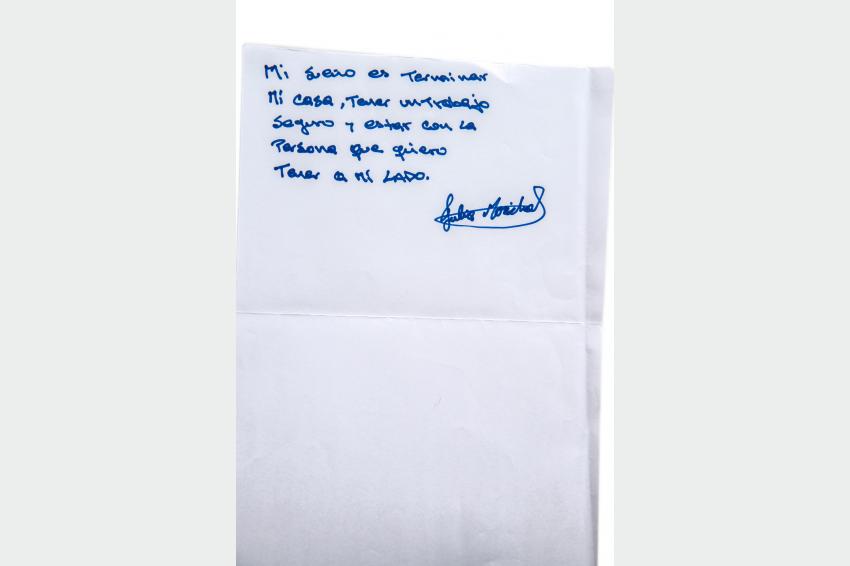 Mi sueño es Terminar
Mi casa, Tener un Trabajo
seguro y estar con la
Persona que quiero
Tener a Mi LADO.